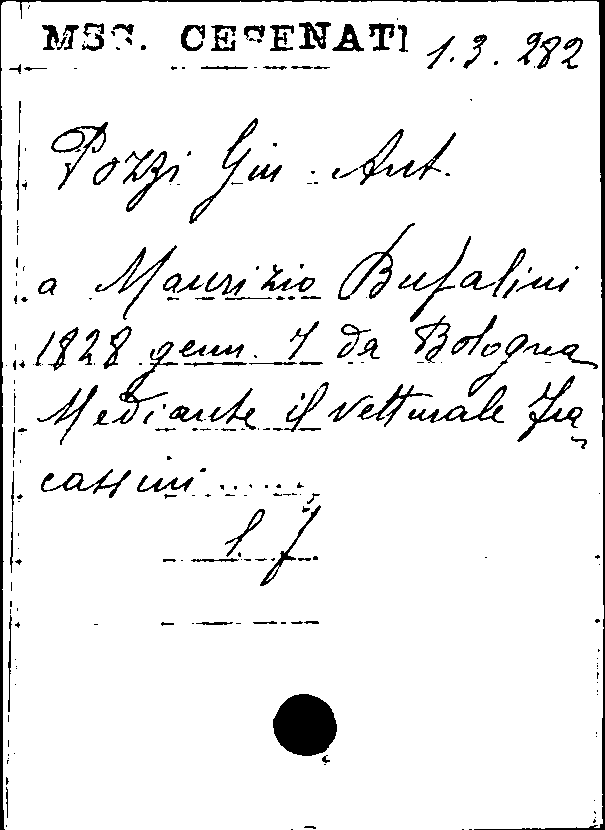 MSS. CESENATI 1.3.282
Pozzi Giu. Ant.
a Maurizio Bufalini
1828 genn. 7 da Bologna
Mediante il vetturale Fra
cassini ......
l. f.